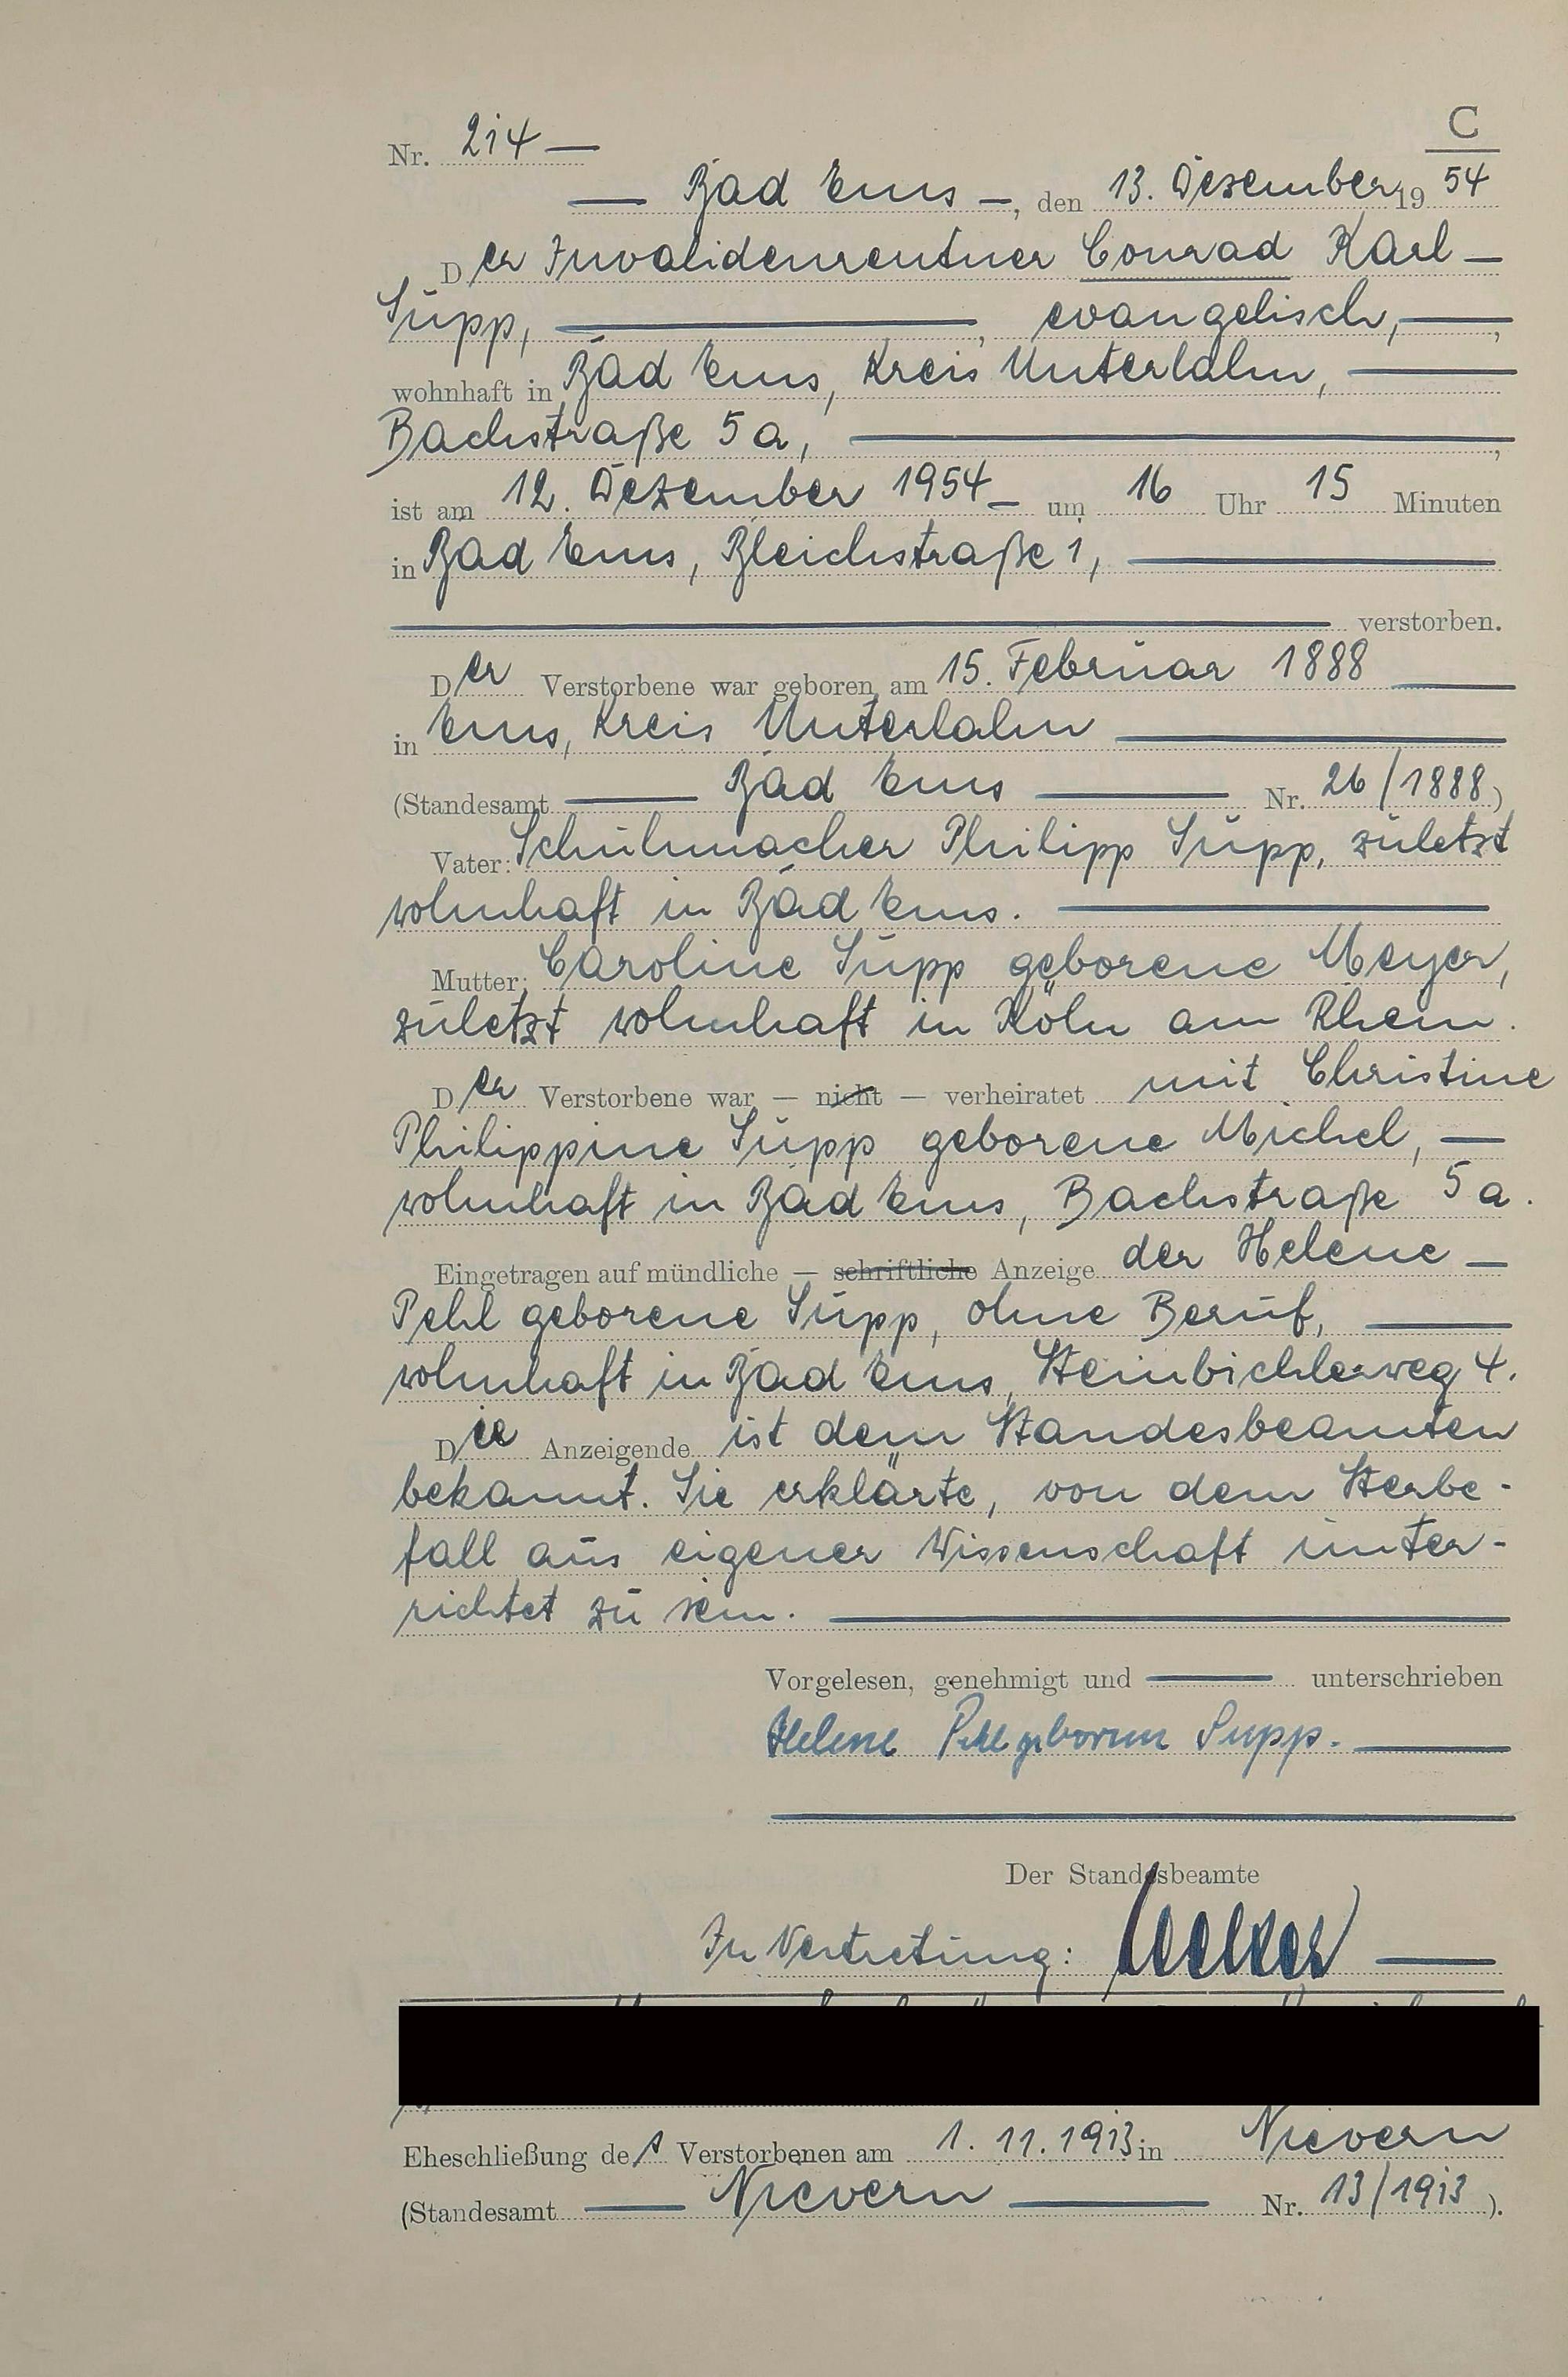 C
Nr. 214 —
— Bad Ems —, den 13. Dezember 19 54
Der Invalidenrentner Conrad Karl —
Supp, —, evangelisch, —,
wohnhaft in Bad Ems, Kreis Unterlahn, —
Bachstraße 5a, —,
ist am 12. Dezember 1954 — um 16 Uhr 15 Minuten
in Bad Ems, Bleichstraße 1, —
— verstorben.
Der Verstorbene war geboren am 15. Februar 1888 —
in Ems, Kreis Unterlahn —
(Standesamt — Bad Ems — Nr. 26/1888)
Vater: Schuhmacher Philipp Supp, zuletzt
wohnhaft in Bad Ems. —
Mutter: Caroline Supp geborene Meyer,
zuletzt wohnhaft in Köln am Rhein.
Der Verstorbene war — nicht — verheiratet mit Christine
Philippine Supp geborene Michel, —
wohnhaft in Bad Ems, Bachstraße 5a.
Eingetragen auf mündliche — schriftliche Anzeige der Helene —
Pehl geborene Supp, ohne Beruf, —
wohnhaft in Bad Ems, Steinbichlerweg 4.
Die Anzeigende ist dem Standesbeamten
bekannt. Sie erklärte, von dem Sterbe-
fall aus eigener Wissenschaft unter-
richtet zu sein. —
Vorgelesen, genehmigt und — unterschrieben
Helene Pehl geborene Supp. —
Der Standesbeamte
In Vertretung: —
Eheschließung des Verstorbenen am 1. 11. 1913 in Nievern
(Standesamt — Nievern — Nr. 13/1913).